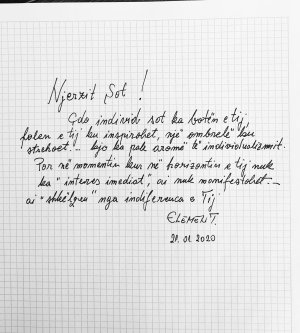 Njerzit Sot !
Çdo individ sot ka botën e tij,
folen e tij ku inspirohet, një ombrelë ku
strehoet... kjo ka pak aromë të individualizmit.
Por në momentin kur në horizontin e tij nuk
ka "interes imediat", ai nuk manifestohet. –
ai "shkëlqen" nga indiferenca e Tij
ELEMENT.
21.01.2020